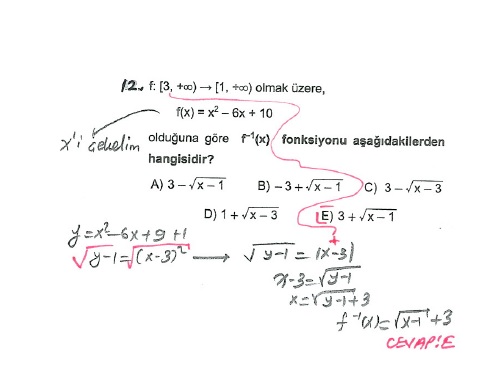 12. f: [3, +∞) → [1, +∞) olmak üzere,
f(x) = x² – 6x + 10
x'i çekelim
olduğuna göre f⁻¹(x) fonksiyonu aşağıdakilerden
hangisidir?
A) 3 – √(x – 1) B) – 3 + √(x – 1) C) 3 – √(x – 3)
D) 1 + √(x – 3) E) 3 + √(x – 1)
y = x² – 6x + 9 + 1
√(y-1) = √((x-3)²) → √(y-1) = |x-3|
+
x-3 = √(y-1)
x = √(y-1) + 3
f⁻¹(x) = √(x-1) + 3
CEVAP: E